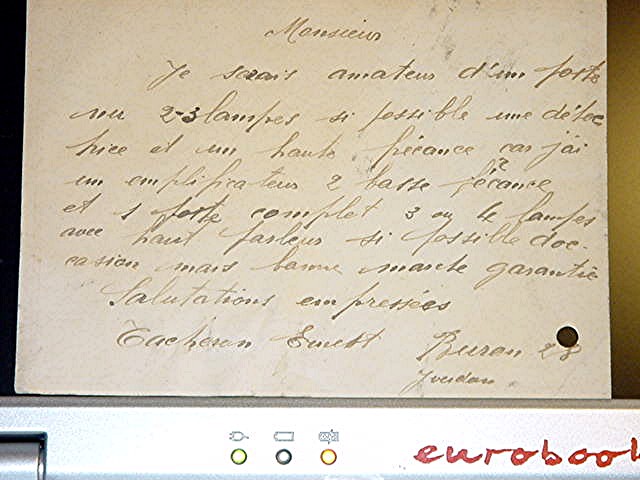 Monsieur
Je serais amateur d'un poste
nu 2-3 lampes si possible une détec
trice et un haute frécance car j'ai
un emplificateur 2 basse frécance
et 1 poste complet 3 ou 4 lampes
avec haut parleur si possible doc-
casion mais bonne marche garantie
Salutations empressées
Tacheron Ernest Buron 28
Yverdon.
eurobook